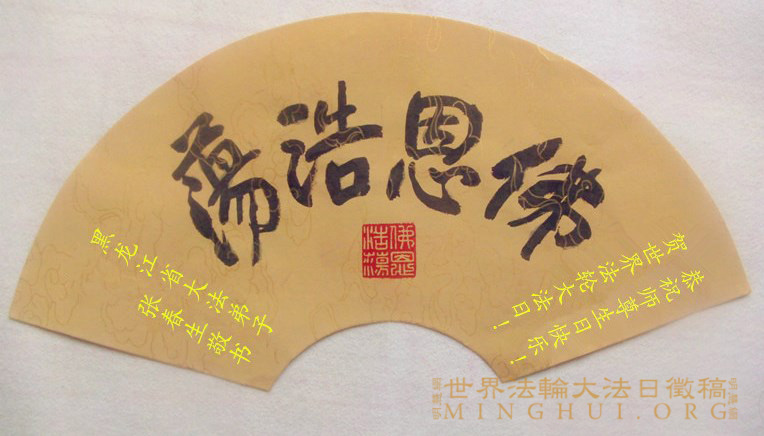 佛恩浩蕩
佛恩
浩蕩
恭祝师尊生日快乐！
贺世界法轮大法日！
黑龙江省大法弟子
张春生敬书
世界法輪大法日徵稿
MINGHUI.ORG